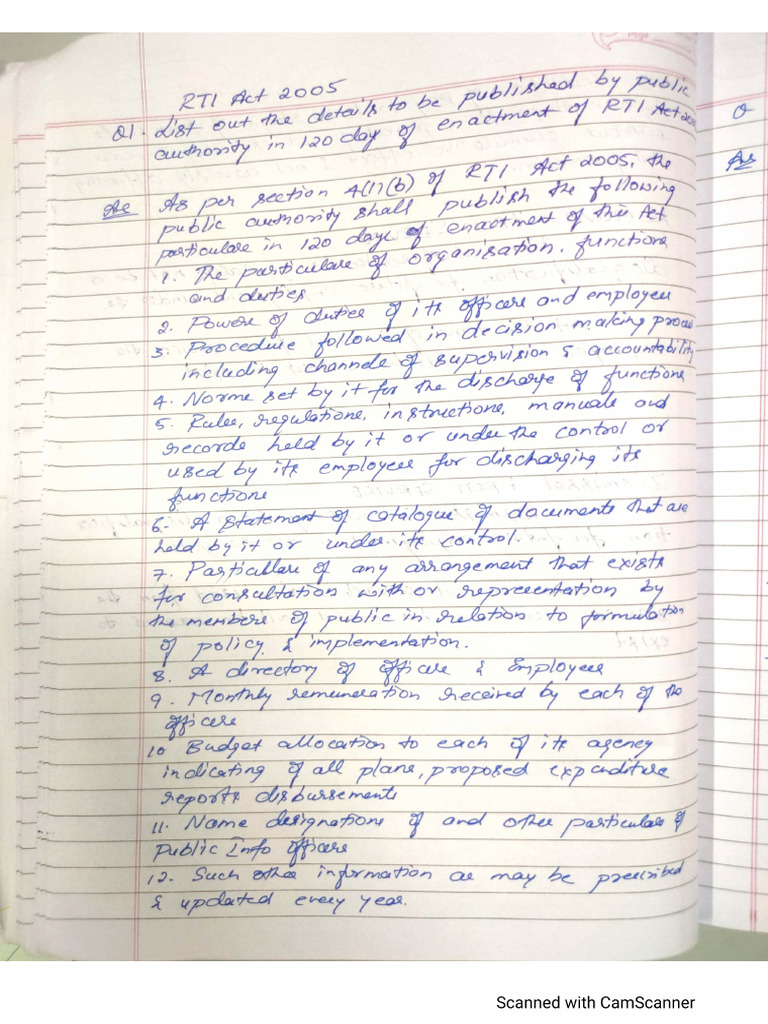 RTI Act 2005
Q1. List out the details to be published by public
authority in 120 day of enactment of RTI Act 2005
As As per section 4(1)(b) of RTI Act 2005, the
public authority shall publish the following
particulars in 120 days of enactment of this Act
1. The particulars of organisation, functions
and duties
2. Power of duties of its officers and employees
3. Procedure followed in decision making process
including channels of supervision & accountability
4. Norms set by it for the discharge of functions
5. Rules, regulations, instructions, manuals and
records held by it or under the control or
used by its employees for discharging its
functions
6. A statement of catalogue of documents that are
held by it or under its control.
7. Particulars of any arrangement that exists
for consultation with or representation by
the members of public in relation to formulation
of policy & implementation.
8. A directory of officers & Employees
9. Monthly remuneration received by each of the
officers
10 Budget allocation to each of its agency
indicating of all plans, proposed expenditure
reports disbursements
11. Name designations of and other particulars of
Public Info officers
12. Such other information as may be prescribed
& updated every year.
Q
As
Scanned with CamScanner